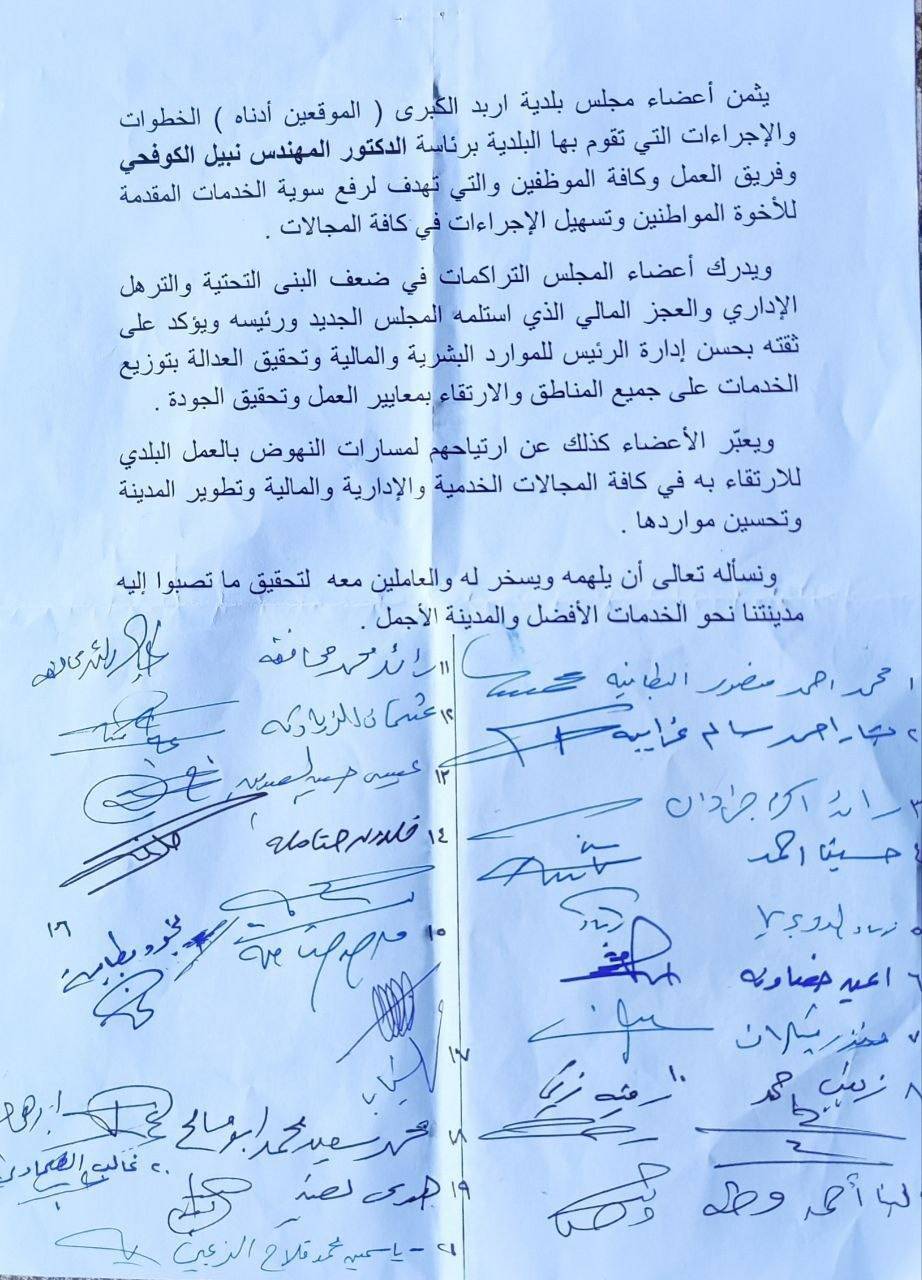 يثمن أعضاء مجلس بلدية اربد الكبرى ( الموقعين أدناه ) الخطوات
والإجراءات التي تقوم بها البلدية برئاسة الدكتور المهندس نبيل الكوفحي
وفريق العمل وكافة الموظفين والتي تهدف لرفع سوية الخدمات المقدمة
للأخوة المواطنين وتسهيل الإجراءات في كافة المجالات .
ويدرك أعضاء المجلس التراكمات في ضعف البنى التحتية والترهل
الإداري والعجز المالي الذي استلمه المجلس الجديد ورئيسه ويؤكد على
ثقته بحسن إدارة الرئيس للموارد البشرية والمالية وتحقيق العدالة بتوزيع
الخدمات على جميع المناطق والارتقاء بمعايير العمل وتحقيق الجودة .
ويعبّر الأعضاء كذلك عن ارتياحهم لمسارات النهوض بالعمل البلدي
للارتقاء به في كافة المجالات الخدمية والإدارية والمالية وتطوير المدينة
وتحسين مواردها .
ونسأله تعالى أن يلهمه ويسخر له والعاملين معه لتحقيق ما تصبوا إليه
مدينتنا نحو الخدمات الأفضل والمدينة الأجمل .
١ محمد احمد منصور البطاينه
٢ احمد سالم غرايبه
٣ رائد اكرم
٤ احمد
٥ زياد
٦
٧ منذر
٨ زينب حمد
١٠ زكي
لينا أحمد
١١ رائد محمد محافظه
١٢ عثمان
١٣ عيسى
١٤ خلدون حتامله
١٥ حتامله
١٦ بطاينة
١٧
١٨ محمد سعيد محمد ابو صالح
١٩ هدى
٢٠ غالب
٢١ - ياسمين محمد فلاح الزعبي